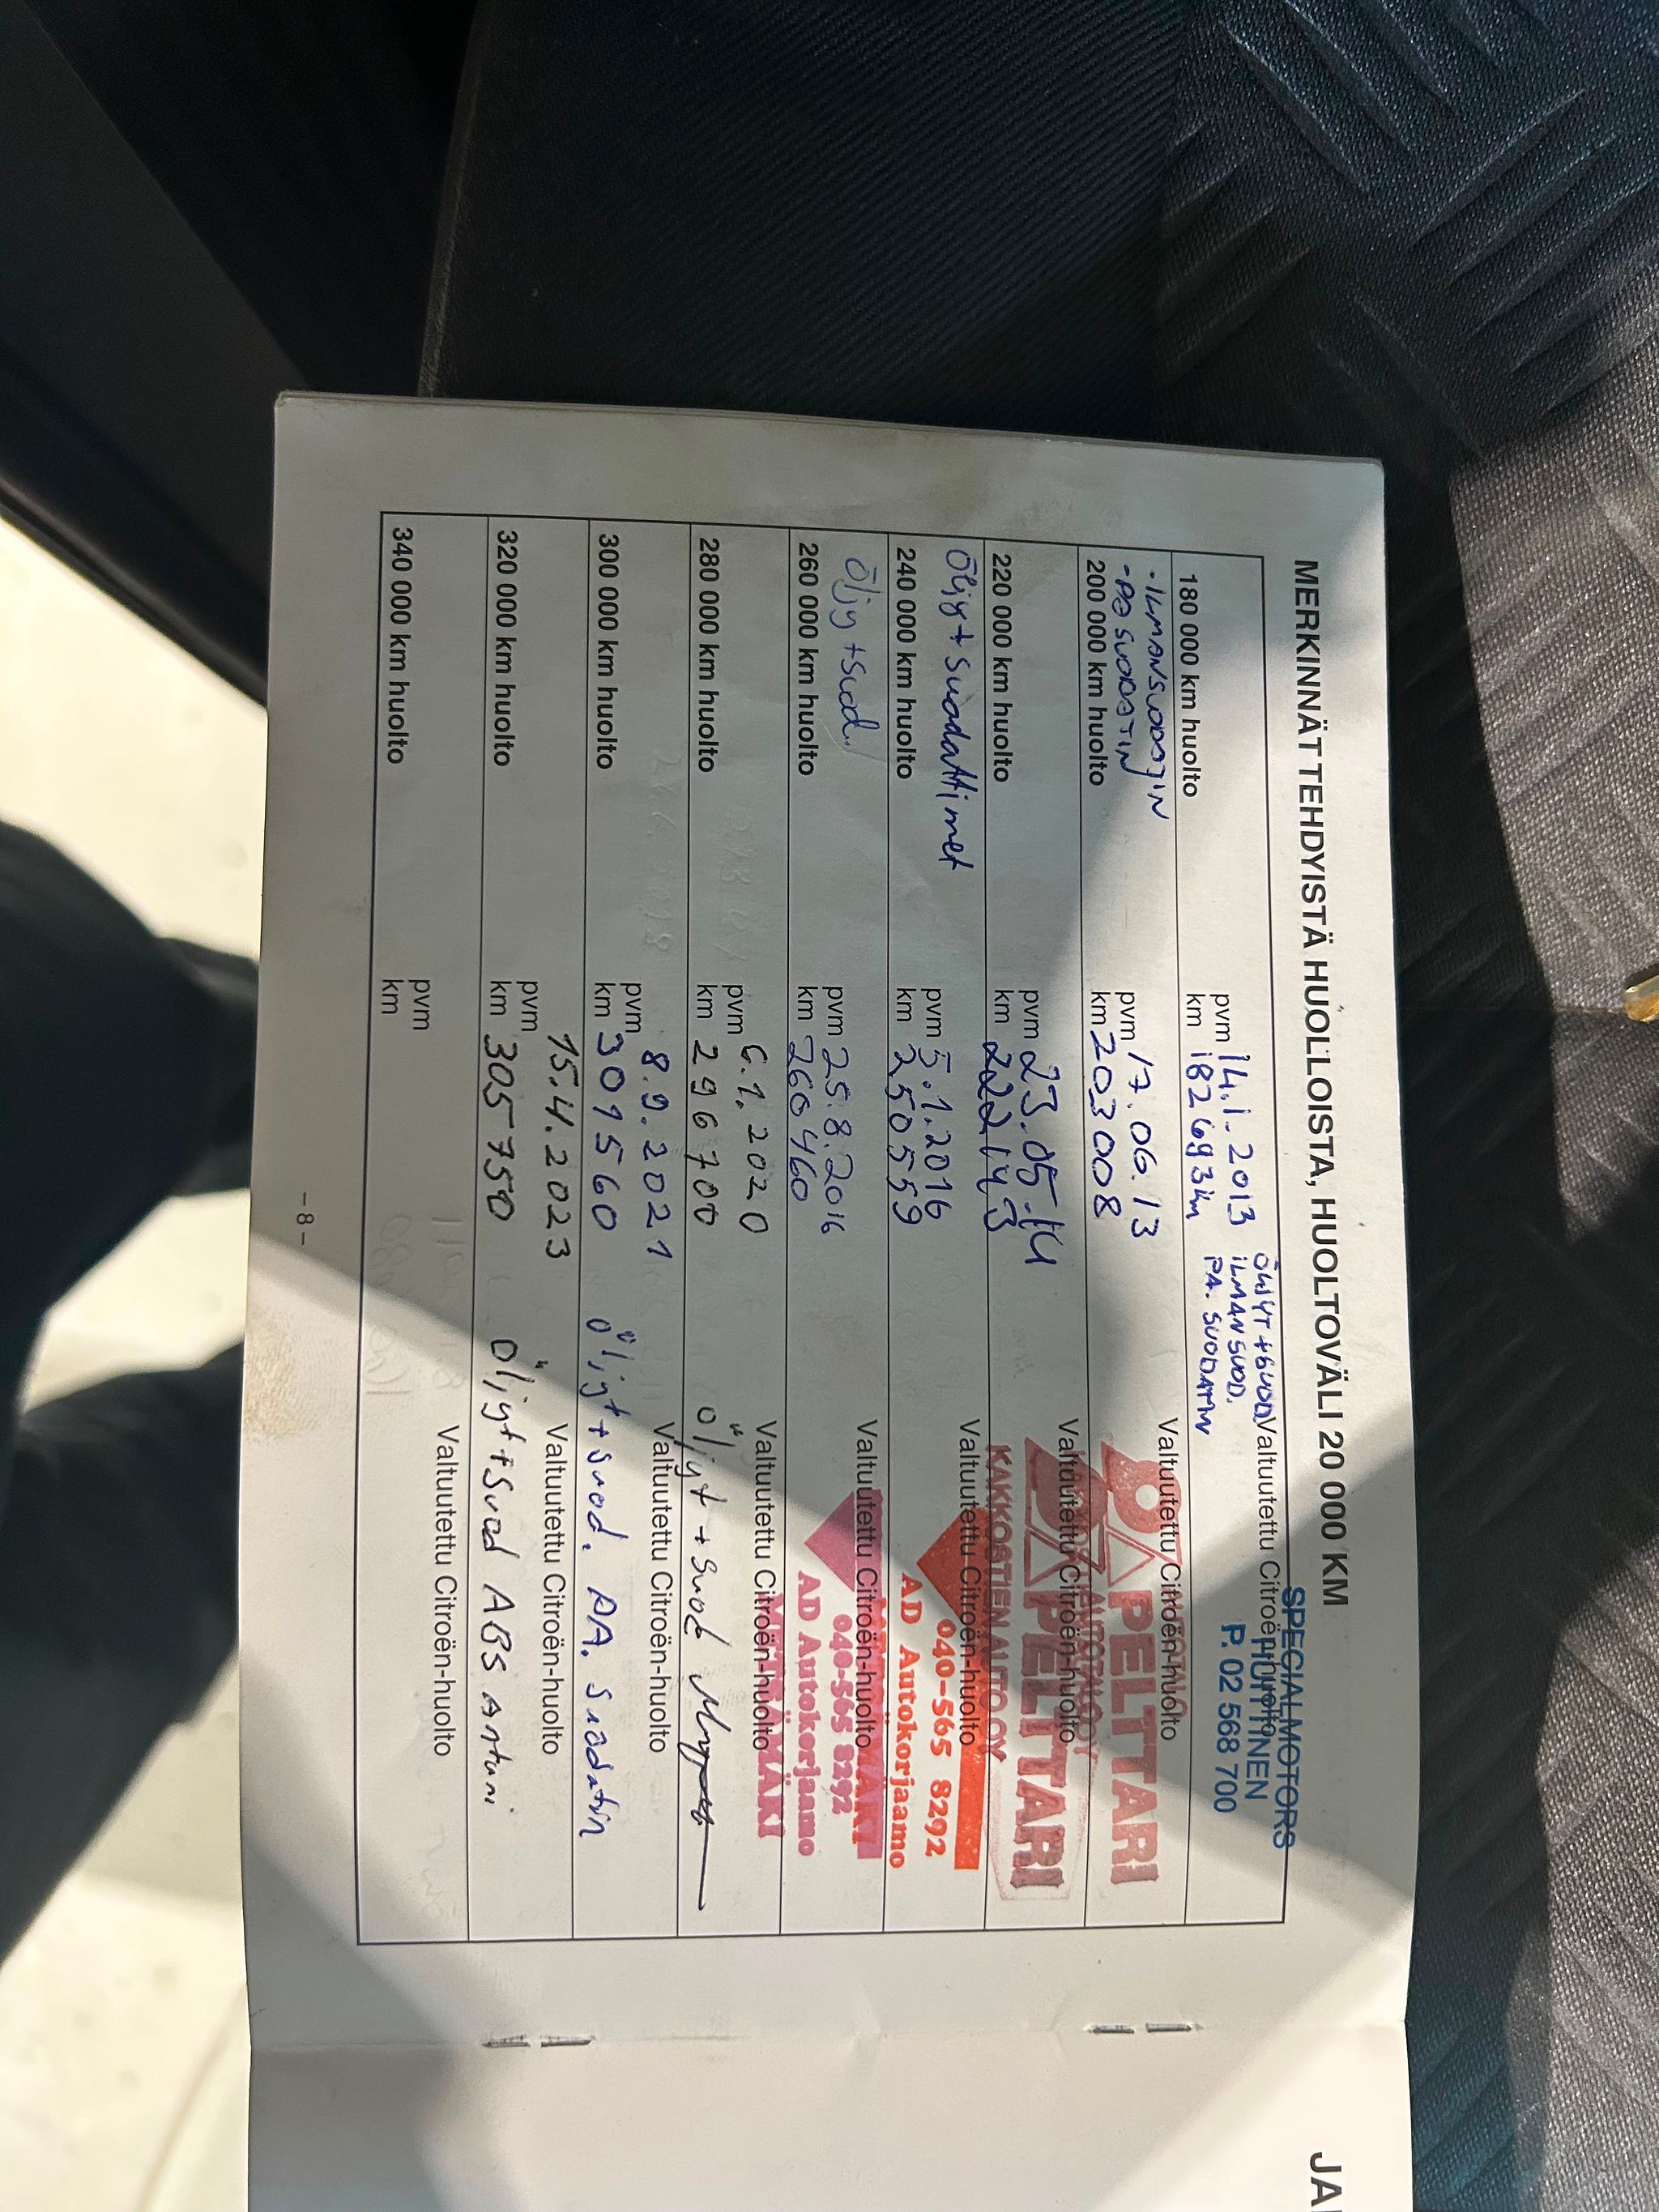 MERKINNÄT TEHDYISTÄ HUOLLOISTA, HUOLTOVÄLI 20 000 KM
SPECIALMOTORS
HUITTINEN
P. 02 568 700
180 000 km huolto
pvm 14.1.2013
km 182693km
ÖLJYT+SUOD
ILMANSUOD.
P.A. SUODATIN
Valtuutettu Citroën-huolto
- ILMANSUODATIN
- PA SUODATIN
200 000 km huolto
pvm 17.06.13
km 203008
Valtuutettu Citroën-huolto
PELTTARI
220 000 km huolto
pvm 23.05.14
km 222143
Valtuutettu Citroën-huolto
PELTTARI
KAKKOSTIEN AUTO OY
Öljyt+suodattimet
240 000 km huolto
pvm 5.1.2016
km 250559
Valtuutettu Citroën-huolto
040-565 8292
AD Autokorjaamo
Öljy+suod.
260 000 km huolto
pvm 25.8.2016
km 260460
Valtuutettu Citroën-huolto
040-565 8292
AD Autokorjaamo
280 000 km huolto
pvm 6.1.2020
km 296700
Valtuutettu Citroën-huolto
METSÄMÄKI
öljyt + suod
300 000 km huolto
pvm 8.9.2021
km 301560
Valtuutettu Citroën-huolto
öljyt+suod. PA. suodatin
320 000 km huolto
pvm 15.4.2023
km 305750
Valtuutettu Citroën-huolto
öljyt+suod ABS anturi
340 000 km huolto
pvm
km
Valtuutettu Citroën-huolto
– 8 –